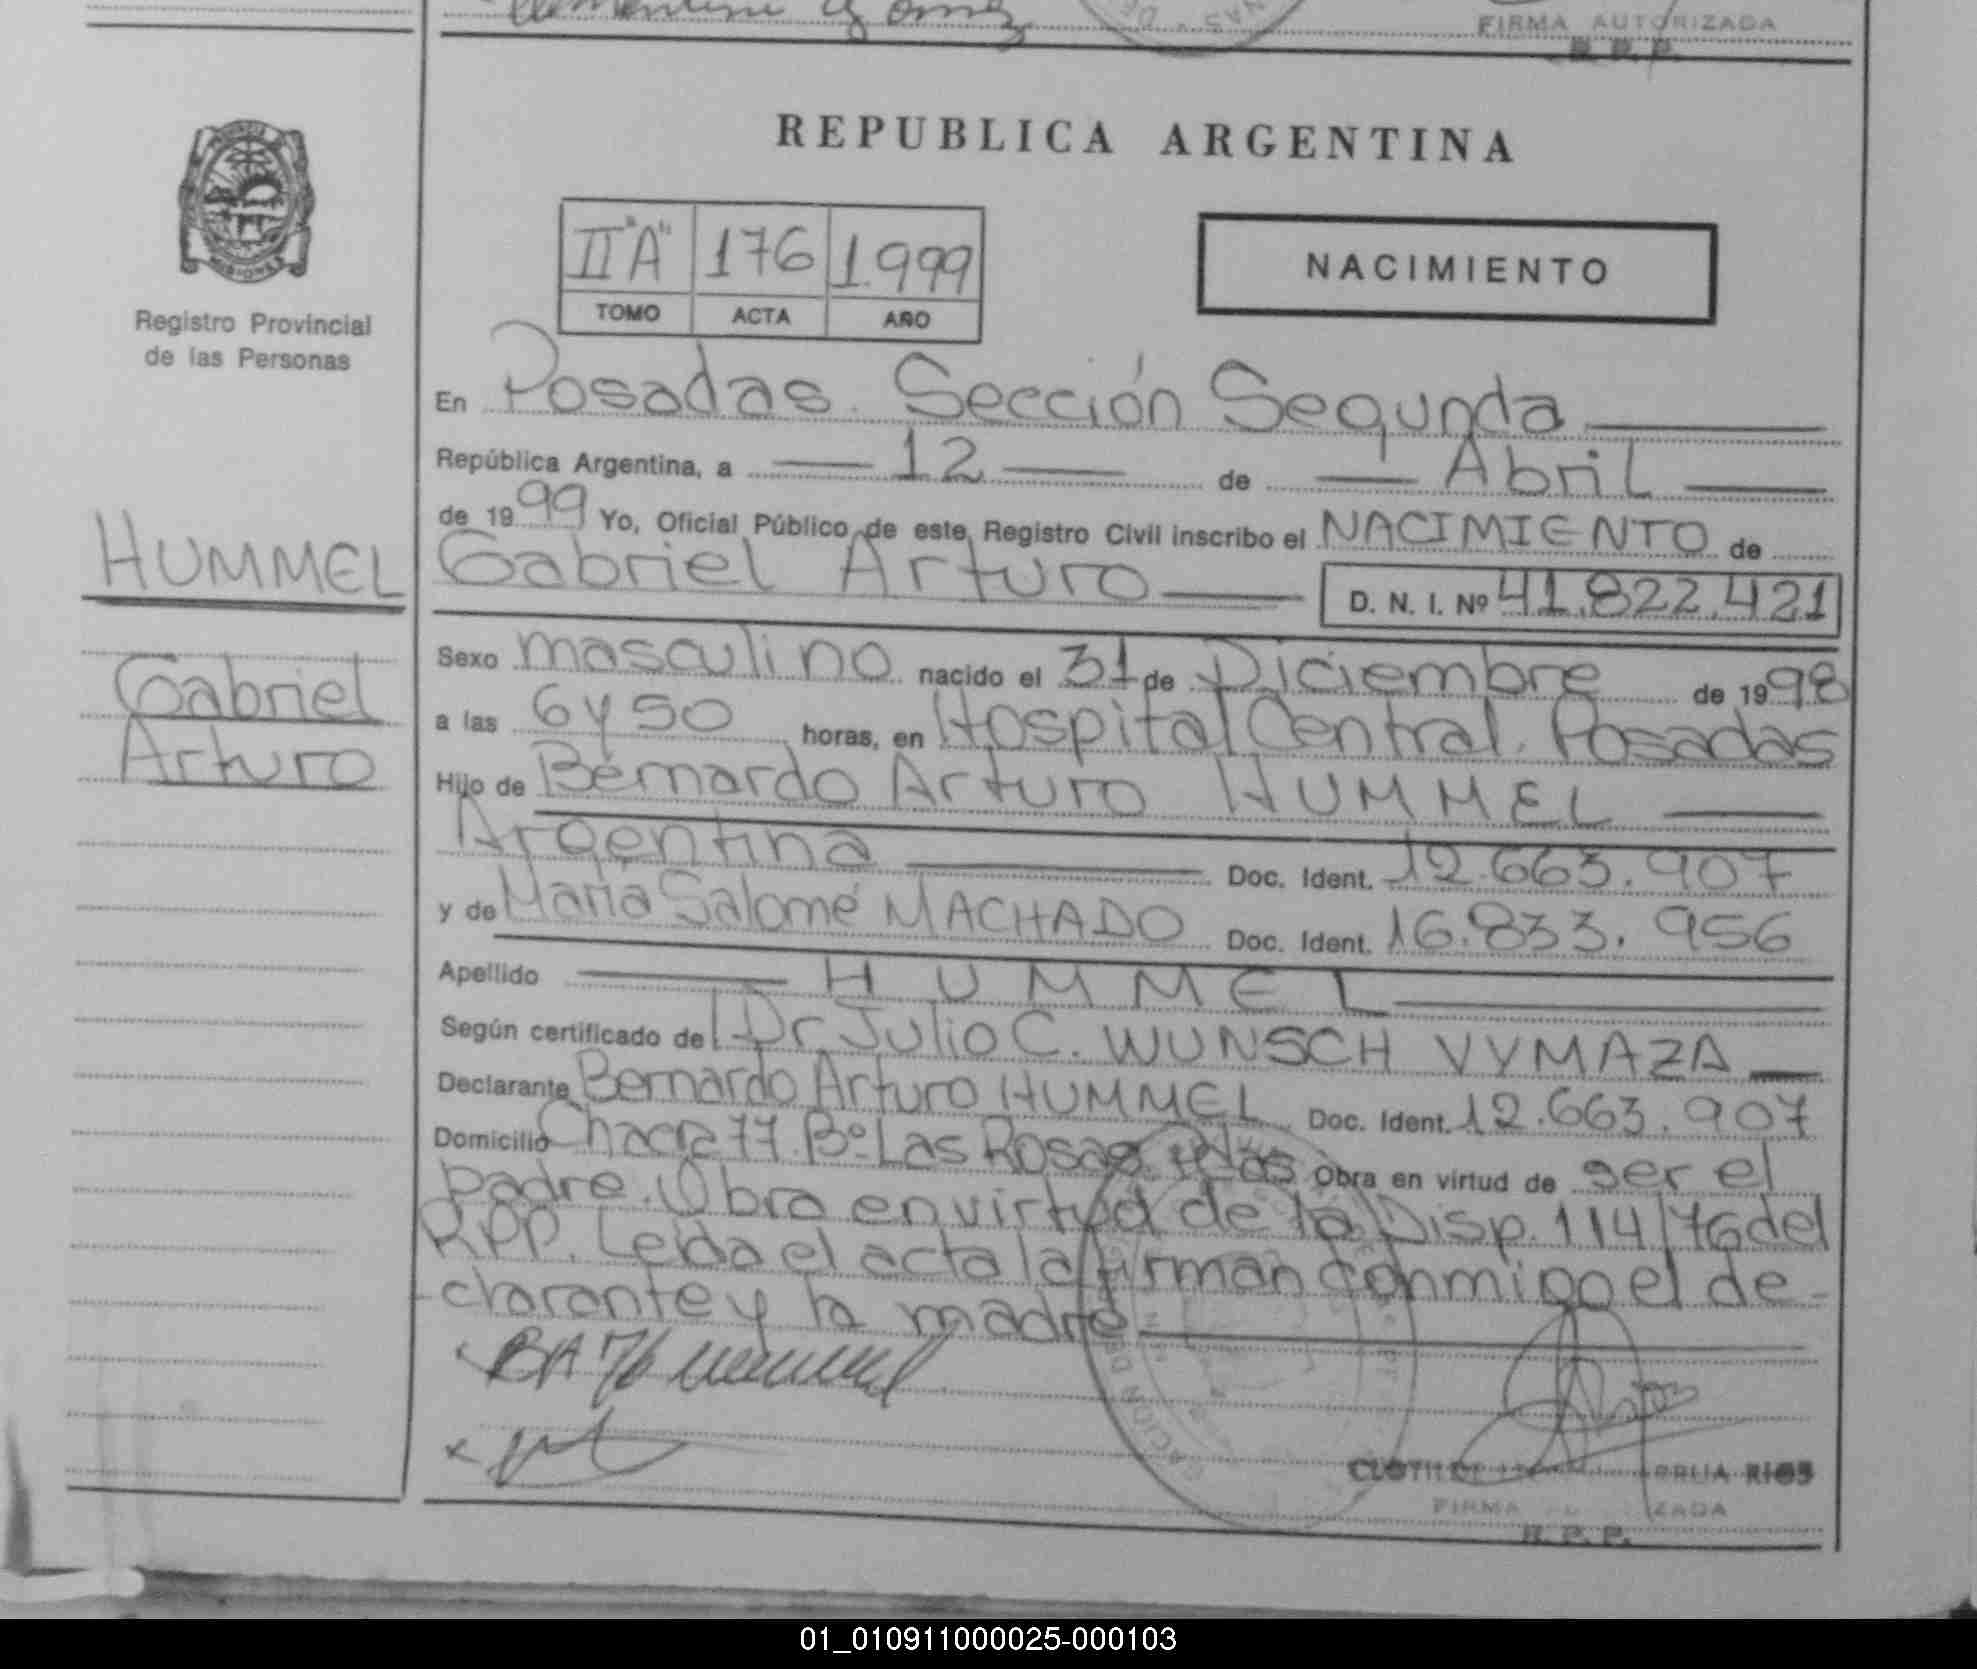 FIRMA AUTORIZADA
R. P. P.
REPUBLICA ARGENTINA
II "A" 176 1.999
TOMO ACTA AÑO
NACIMIENTO
Registro Provincial
de las Personas
HUMMEL
Gabriel
Arturo
En Posadas. Sección Segunda
República Argentina, a 12 de Abril
de 1999 Yo, Oficial Público de este Registro Civil inscribo el NACIMIENTO de
Gabriel Arturo D. N. I. Nº 41.822.421
Sexo masculino nacido el 31 de Diciembre de 1998
a las 6 y 50 horas, en Hospital Central. Posadas
Hijo de Bernardo Arturo HUMMEL
Argentina Doc. Ident. 12.663.907
y de María Salomé MACHADO Doc. Ident. 16.833.956
Apellido HUMMEL
Según certificado de Dr. Julio C. WUNSCH VYMAZA
Declarante Bernardo Arturo HUMMEL Doc. Ident. 12.663.907
Domicilio Chacra 77. Bº Las Rosas Obra en virtud de ser el
padre. Obra en virtud de la Disp. 114/76 del
RPP. Leida el acta la firman conmigo el de-
clarante y la madre
RIOS
FIRMA ZADA
R. P. P.
01_010911000025-000103